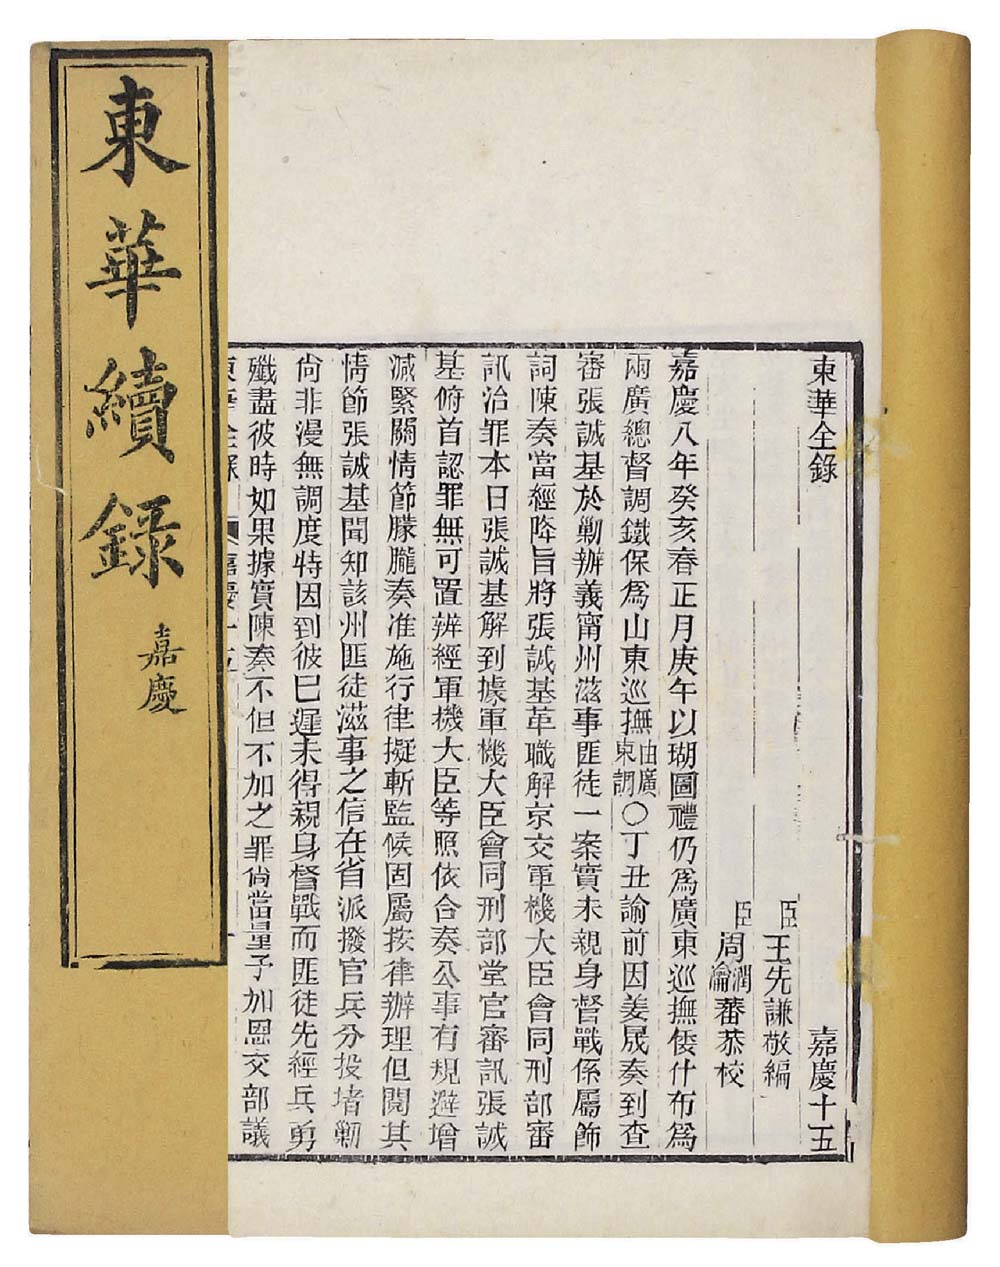 東華續錄
嘉慶
東華全錄 嘉慶十五
臣王先謙敬編
臣周潤蕃瀹蕃恭校
嘉慶八年癸亥春正月庚午以瑚圖禮仍爲廣東巡撫倭什布爲
兩廣總督調鐵保爲山東巡撫由廣東調〇丁丑諭前因姜晟奏到查
審張誠基於勦辦義甯州滋事匪徒一案實未親身督戰係屬飾
詞陳奏當經降旨將張誠基革職解京交軍機大臣會同刑部審
訊治罪本日張誠基解到據軍機大臣會同刑部堂官審訊張誠
基俯首認罪無可置辨經軍機大臣等照依合奏公事有規避增
減緊關情節朦朧奏准施行律擬斬監候固屬按律辦理但閱其
情節張誠基聞知該州匪徒滋事之信在省派撥官兵分投堵勦
尙非漫無調度特因到彼已遲未得親身督戰而匪徒先經兵勇
殲盡彼時如果據實陳奏不但不加之罪尙當量予加恩交部議